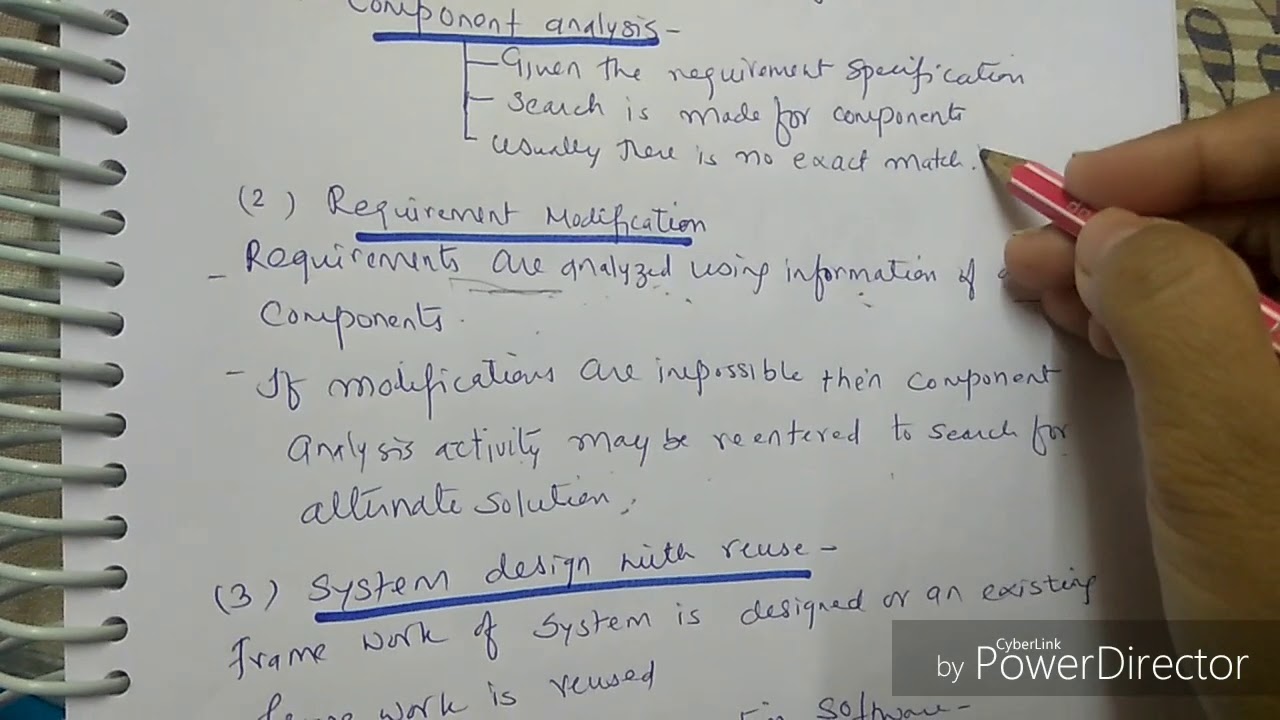 Component analysis -
Given the requirement specification
Search is made for components
usually there is no exact match.
(2) Requirement Modification
- Requirements are analyzed using information of
Components.
- If modifications are impossible then component
analysis activity may be reentered to search for
alternate solution.
(3) System design with reuse -
frame work of system is designed or an existing
frame work is reused
software -
CyberLink
by PowerDirector